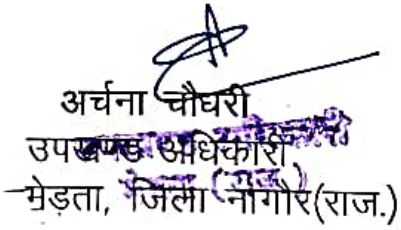 अर्चना चौधरी
उपखण्ड अधिकारी
मेड़ता, जिला नागौर(राज.)